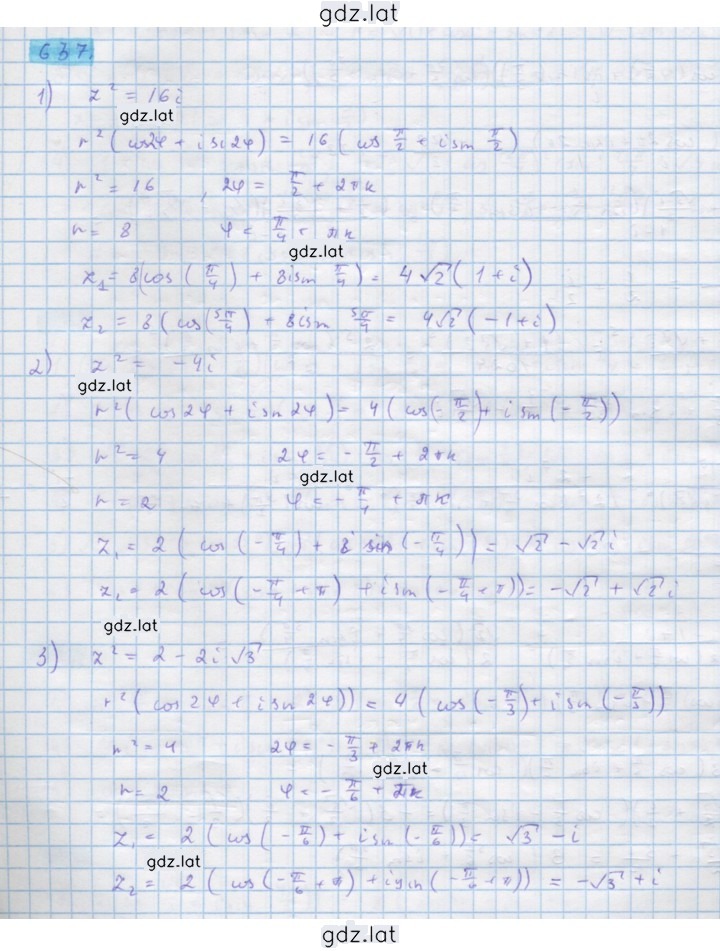 gdz.lat
637.
1) z² = 16i
gdz.lat
r²(cos2φ + i si2φ) = 16(cos π/2 + i sin π/2)
r² = 16 , 2φ = π/2 + 2πk
r = 8 φ = π/4 + πk
gdz.lat
z₁ = 8(cos(π/4) + 8isin π/4) = 4√2(1+i)
z₂ = 8(cos(5π/4) + 8isin 5π/4 = 4√2(-1+i)
2) z² = -4i
gdz.lat
r²(cos2φ + isin2φ) = 4(cos(-π/2) + i sin(-π/2))
r² = 4 2φ = -π/2 + 2πk
gdz.lat
r = 2 φ = -π/4 + πk
z₁ = 2(cos(-π/4) + i sin(-π/4)) = √2 - √2i
z₂ = 2(cos(-π/4 + π) + i sin(-π/4 + π)) = -√2 + √2i
gdz.lat
3) z² = 2 - 2i√3
r²(cos2φ + isin2φ)) = 4(cos(-π/3) + i sin(-π/3))
r² = 4 2φ = -π/3 + 2πk
gdz.lat
r = 2 φ = -π/6 + πk
z₁ = 2(cos(-π/6) + isin(-π/6)) = √3 - i
gdz.lat
z₂ = 2(cos(-π/6 + π) + isin(-π/6 + π)) = -√3 + i
gdz.lat